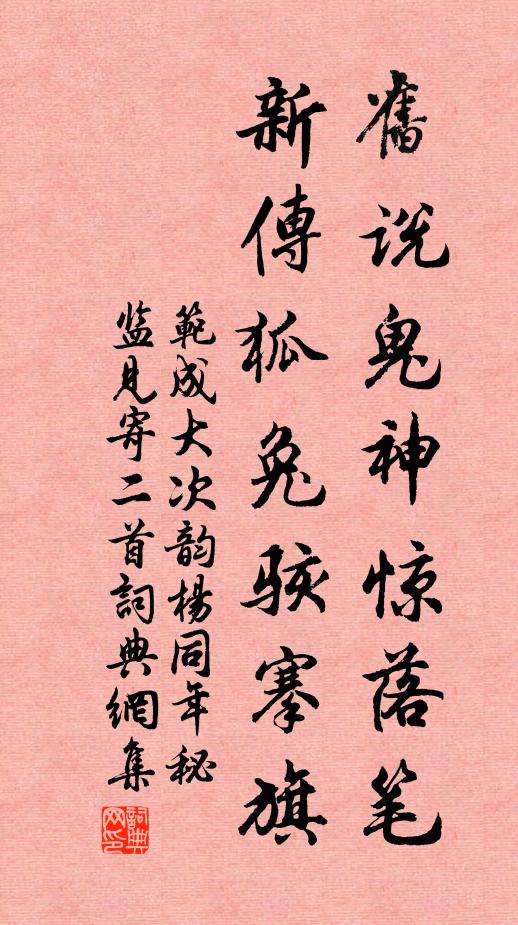 舊说鬼神惊落笔
新傳狐兔駭搴旗
範成大次韵楊同年秘
监見寄二首詞典網集
詞典网印